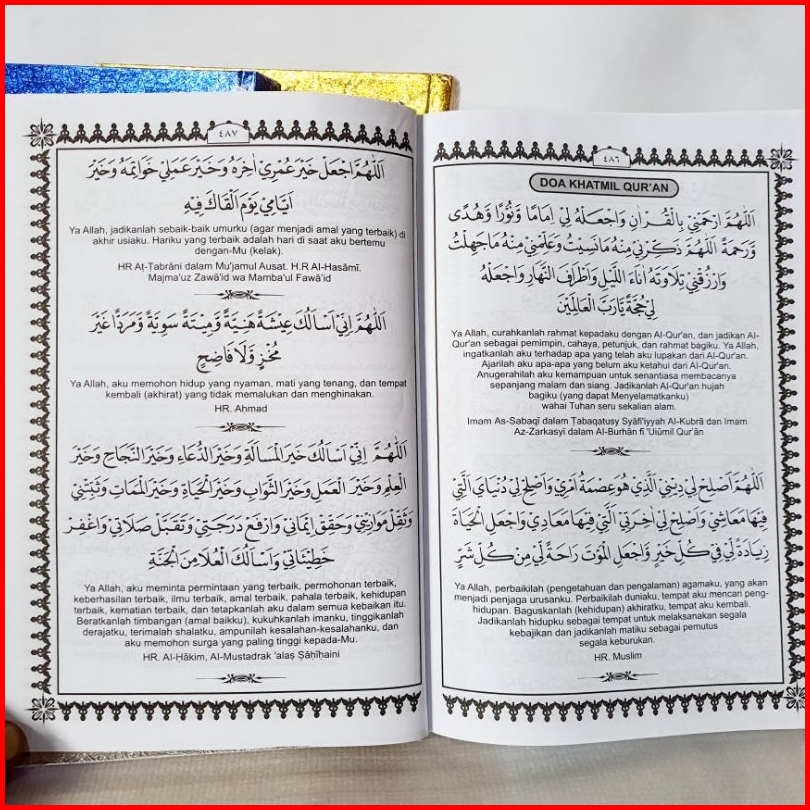 ٤٨٦
DOA KHATMIL QUR'AN
اَللّٰهُمَّ ارْحَمْنِيْ بِالْقُرْاٰنِ وَاجْعَلْهُ لِيْ اِمَامًا وَّنُوْرًا وَّهُدًى
وَّرَحْمَةً اَللّٰهُمَّ ذَكِّرْنِيْ مِنْهُ مَانَسِيْتُ وَعَلِّمْنِيْ مِنْهُ مَاجَهِلْتُ
وَارْزُقْنِيْ تِلَاوَتَهُ اٰنَاءَ اللَّيْلِ وَاَطْرَافَ النَّهَارِ وَاجْعَلْهُ
لِيْ حُجَّةً يَّارَبَّ الْعَالَمِيْنَ
Ya Allah, curahkanlah rahmat kepadaku dengan Al-Qur'an, dan jadikan Al-
Qur'an sebagai pemimpin, cahaya, petunjuk, dan rahmat bagiku. Ya Allah,
ingatkanlah aku terhadap apa yang telah aku lupakan dari Al-Qur'an.
Ajarilah aku apa-apa yang belum aku ketahui dari Al-Qur'an.
Anugerahilah aku kemampuan untuk senantiasa membacanya
sepanjang malam dan siang. Jadikanlah Al-Qur'an hujah
bagiku (yang dapat Menyelamatkanku)
wahai Tuhan seru sekalian alam.
Imam As-Sabaqi dalam Ṭabaqatusy Syāfi'iyyah Al-Kubrā dan Imam
Az-Zarkasyī dalam Al-Burhān fī 'Ulūmil Qur'ān
اَللّٰهُمَّ اَصْلِحْ لِيْ دِيْنِيَ الَّذِيْ هُوَ عِصْمَةُ اَمْرِيْ وَاَصْلِحْ لِيْ دُنْيَايَ الَّتِيْ
فِيْهَا مَعَاشِيْ وَاَصْلِحْ لِيْ اٰخِرَتِيَ الَّتِيْ فِيْهَا مَعَادِيْ وَاجْعَلِ الْحَيَاةَ
زِيَادَةً لِّيْ فِيْ كُلِّ خَيْرٍ وَّاجْعَلِ الْمَوْتَ رَاحَةً لِّيْ مِنْ كُلِّ شَرٍّ
Ya Allah, perbaikilah (pengetahuan dan pengalaman) agamaku, yang akan
menjadi penjaga urusanku. Perbaikilah duniaku, tempat aku mencari peng-
hidupan. Baguskanlah (kehidupan) akhiratku, tempat aku kembali.
Jadikanlah hidupku sebagai tempat untuk melaksanakan segala
kebajikan dan jadikanlah matiku sebagai pemutus
segala keburukan.
HR. Muslim
٤٨٧
اَللّٰهُمَّ اجْعَلْ خَيْرَ عُمْرِيْ اٰخِرَهُ وَخَيْرَ عَمَلِيْ خَوَاتِمَهُ وَخَيْرَ
اَيَّامِيْ يَوْمَ اَلْقَاكَ فِيْهِ
Ya Allah, jadikanlah sebaik-baik umurku (agar menjadi amal yang terbaik) di
akhir usiaku. Hariku yang terbaik adalah hari di saat aku bertemu
dengan-Mu (kelak).
HR Aṭ-Ṭabrāni dalam Mu'jamul Ausat. H.R Al-Hasāmī.
Majma'uz Zawā'id wa Mamba'ul Fawā'id
اَللّٰهُمَّ اِنِّيْ اَسْأَلُكَ عِيْشَةً هَنِيَّةً وَّمِيْتَةً سَوِيَّةً وَّمَرَدًّا غَيْرَ
مُخْزٍ وَّلَا فَاضِحٍ
Ya Allah, aku memohon hidup yang nyaman, mati yang tenang, dan tempat
kembali (akhirat) yang tidak memalukan dan menghinakan.
HR. Aḥmad
اَللّٰهُمَّ اِنِّيْ اَسْأَلُكَ خَيْرَ الْمَسْأَلَةِ وَخَيْرَ الدُّعَاءِ وَخَيْرَ النَّجَاحِ وَخَيْرَ
الْعِلْمِ وَخَيْرَ الْعَمَلِ وَخَيْرَ الثَّوَابِ وَخَيْرَ الْحَيَاةِ وَخَيْرَ الْمَمَاتِ وَثَبِّتْنِيْ
وَثَقِّلْ مَوَازِيْنِيْ وَحَقِّقْ اِيْمَانِيْ وَارْفَعْ دَرَجَتِيْ وَتَقَبَّلْ صَلَاتِيْ وَاغْفِرْ
خَطِيْئَاتِيْ وَاَسْأَلُكَ الْعُلَا مِنَ الْجَنَّةِ
Ya Allah, aku meminta permintaan yang terbaik, permohonan terbaik,
keberhasilan terbaik, ilmu terbaik, amal terbaik, pahala terbaik, kehidupan
terbaik, kematian terbaik, dan tetapkanlah aku dalam semua kebaikan itu.
Beratkanlah timbangan (amal baikku), kukuhkanlah imanku, tinggikanlah
derajatku, terimalah shalatku, ampunilah kesalahan-kesalahanku, dan
aku memohon surga yang paling tinggi kepada-Mu.
HR. Al-Ḥākim, Al-Mustadrak 'alaṣ Ṣāḥīḥaini